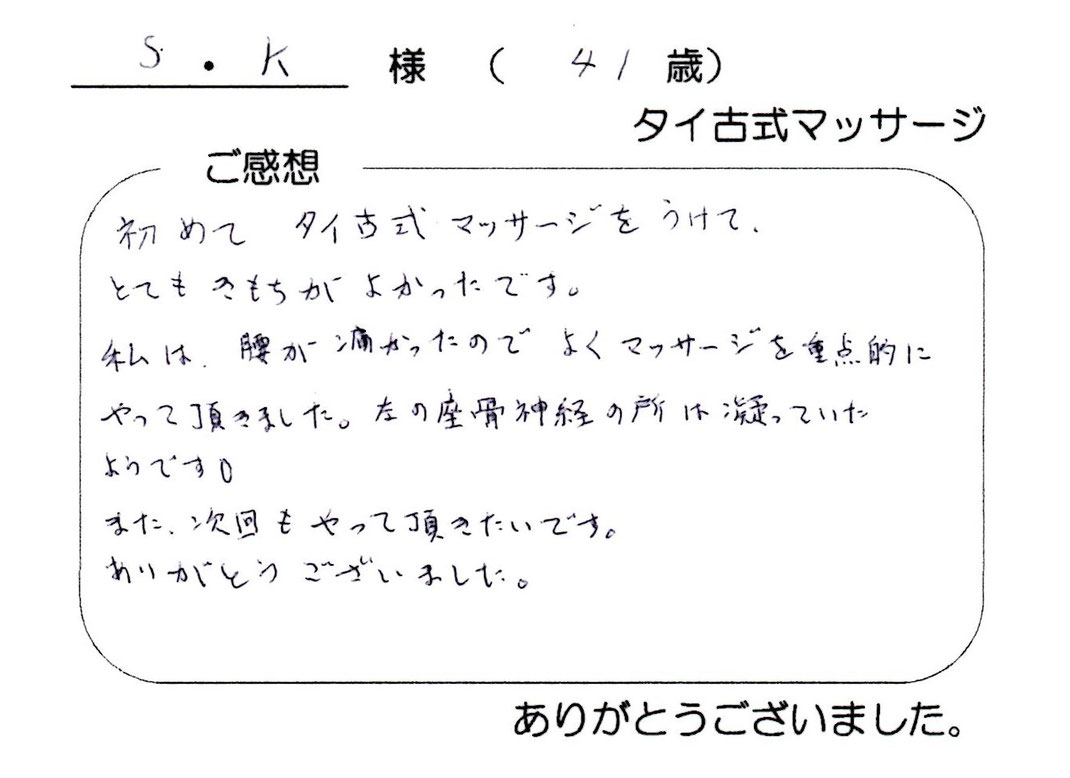 S・K 様 ( 41 歳)
タイ古式マッサージ
ご感想
初めて タイ古式マッサージをうけて、
とてもきもちがよかったです。
私は、腰が痛かったのでよくマッサージを重点的に
やって頂きました。左の座骨神経の所は凝っていた
ようです。
また、次回もやって頂きたいです。
ありがとうございました。
ありがとうございました。